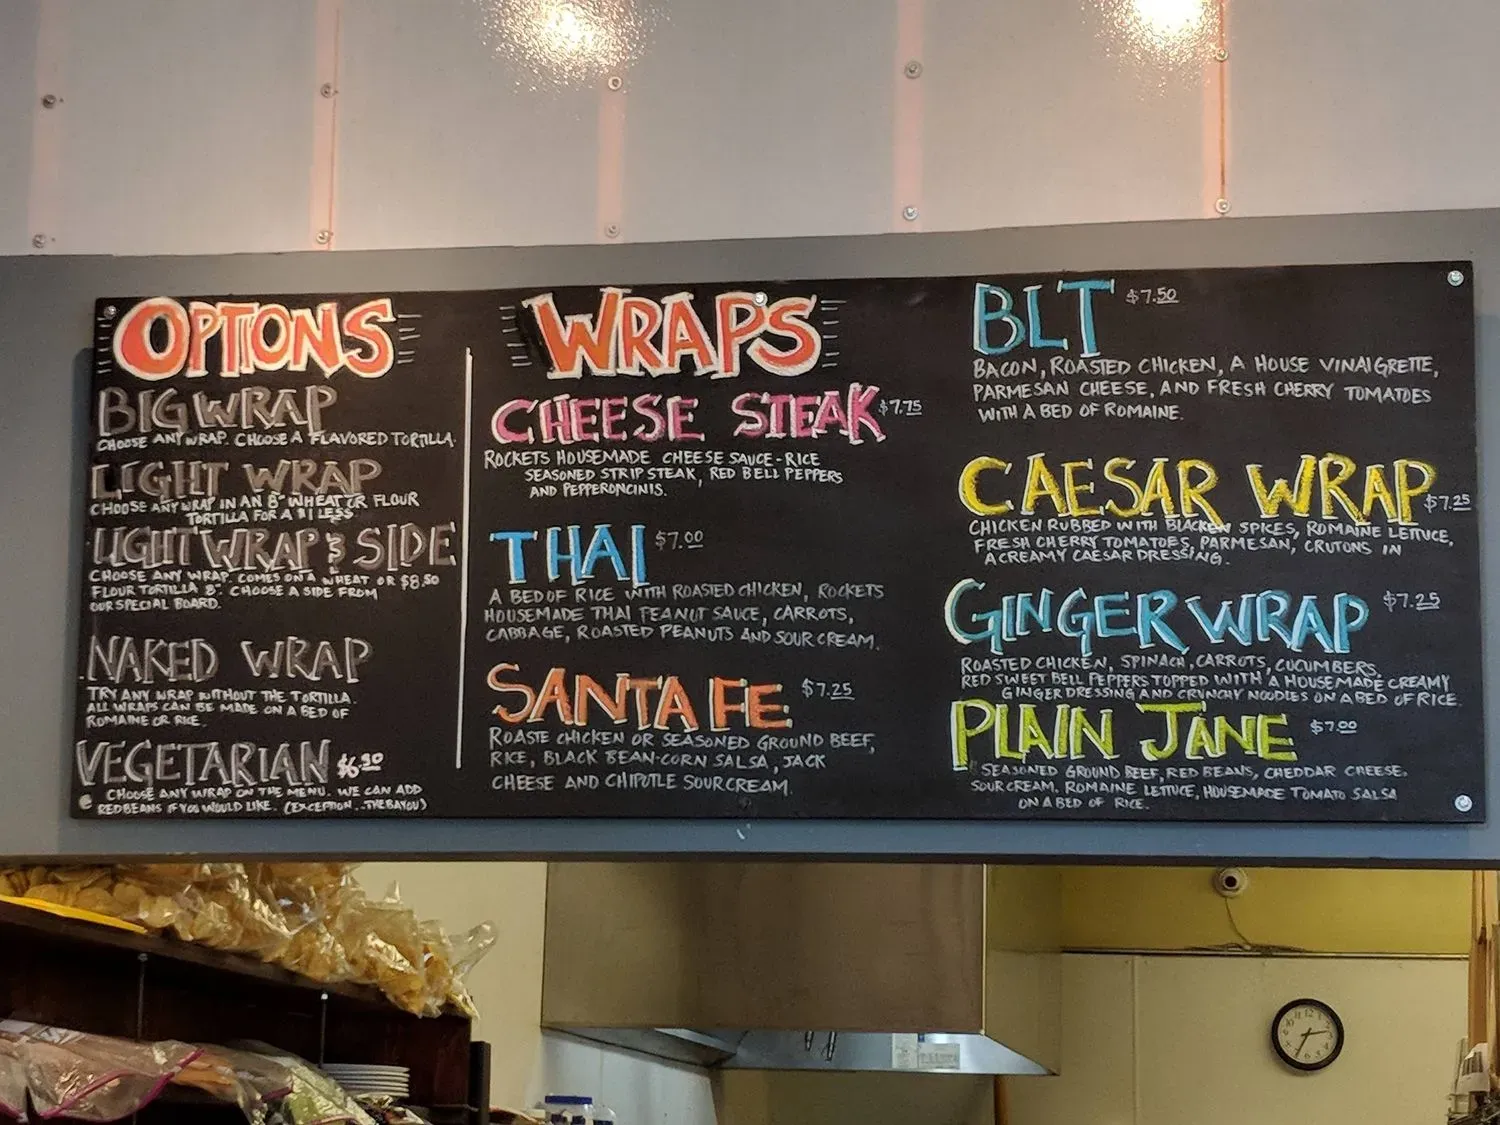 OPTIONS
BIG WRAP
CHOOSE ANY WRAP. CHOOSE A FLAVORED TORTILLA.
LIGHT WRAP
CHOOSE ANY WRAP IN AN 8" WHEAT OR FLOUR
TORTILLA FOR A $1 LESS
LIGHT WRAP & SIDE
CHOOSE ANY WRAP. COMES ON A WHEAT OR $8.50
FLOUR TORTILLA 8". CHOOSE A SIDE FROM
OUR SPECIAL BOARD.
NAKED WRAP
TRY ANY WRAP WITHOUT THE TORTILLA.
ALL WRAPS CAN BE MADE ON A BED OF
ROMAINE OR RICE.
VEGETARIAN $6.90
CHOOSE ANY WRAP ON THE MENU. WE CAN ADD
RED BEANS IF YOU WOULD LIKE. (EXCEPTION...THE BAYOU)
WRAPS
CHEESE STEAK $7.75
ROCKETS HOUSEMADE CHEESE SAUCE-RICE
SEASONED STRIP STEAK, RED BELL PEPPERS
AND PEPPERONCINIS.
THAI $7.00
A BED OF RICE WITH ROASTED CHICKEN, ROCKETS
HOUSEMADE THAI PEANUT SAUCE, CARROTS,
CABBAGE, ROASTED PEANUTS AND SOUR CREAM.
SANTA FE $7.25
ROASTE CHICKEN OR SEASONED GROUND BEEF,
RICE, BLACK BEAN-CORN SALSA, JACK
CHEESE AND CHIPOTLE SOUR CREAM.
BLT $7.50
BACON, ROASTED CHICKEN, A HOUSE VINAIGRETTE,
PARMESAN CHEESE, AND FRESH CHERRY TOMATOES
WITH A BED OF ROMAINE.
CAESAR WRAP $7.25
CHICKEN RUBBED WITH BLACKEN SPICES, ROMAINE LETTUCE,
FRESH CHERRY TOMATOES, PARMESAN, CRUTONS IN
A CREAMY CAESAR DRESSING.
GINGER WRAP $7.25
ROASTED CHICKEN, SPINACH, CARROTS, CUCUMBERS,
RED SWEET BELL PEPPERS TOPPED WITH A HOUSEMADE CREAMY
GINGER DRESSING AND CRUNCHY NOODLES ON A BED OF RICE.
PLAIN JANE $7.00
SEASONED GROUND BEEF, RED BEANS, CHEDDAR CHEESE.
SOUR CREAM. ROMAINE LETTUCE, HOUSEMADE TOMATO SALSA
ON A BED OF RICE.